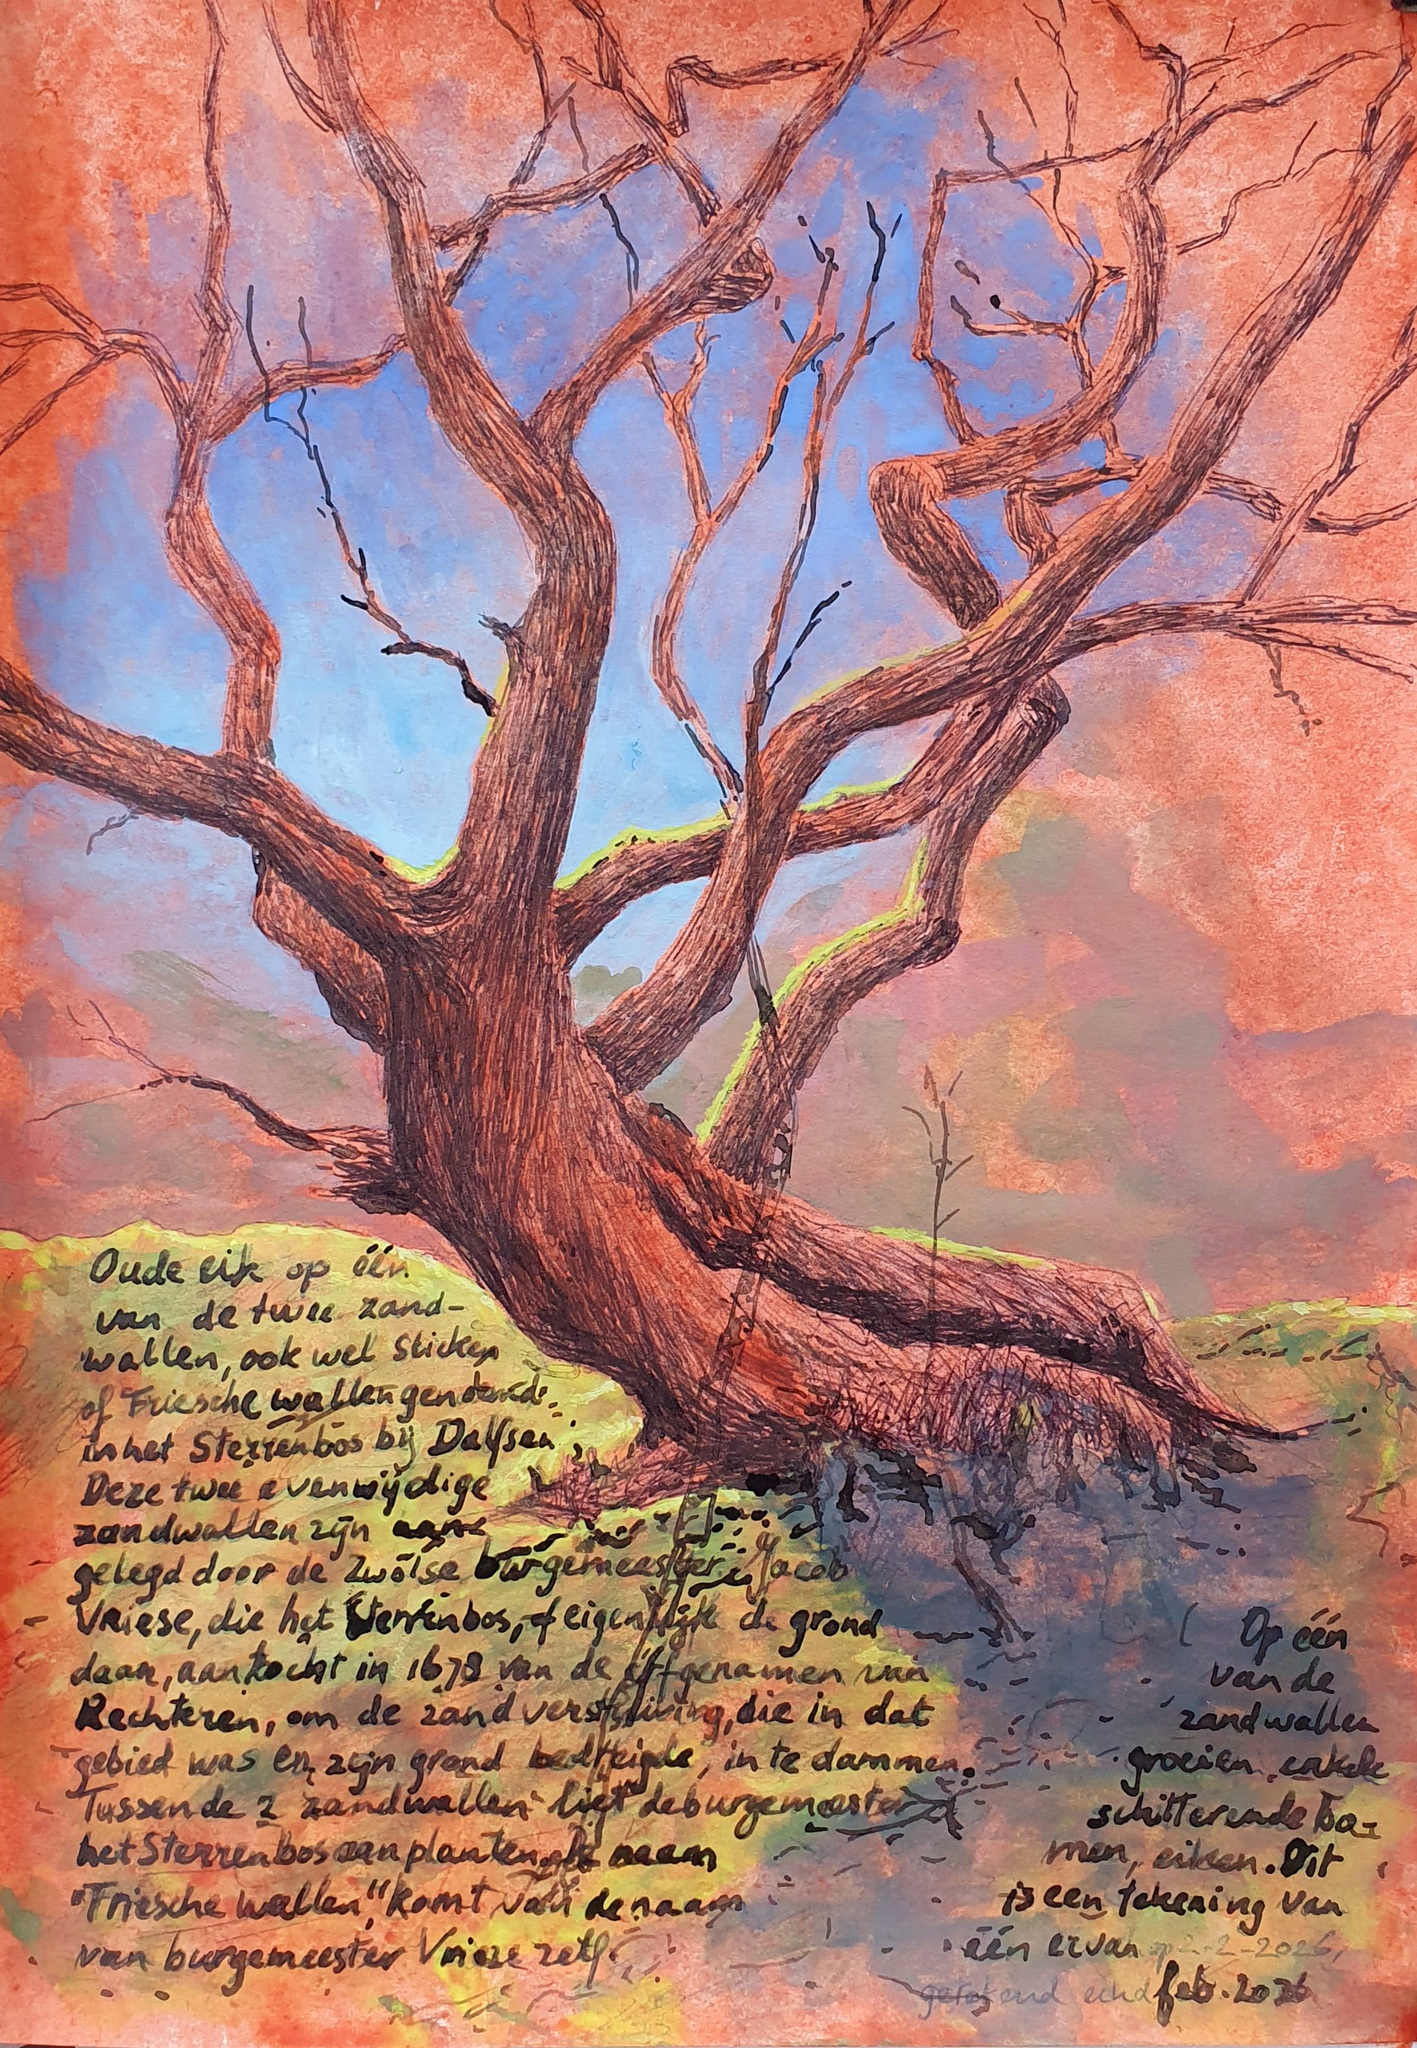 Oude eik op één
van de twee zand-
wallen, ook wel Sticken
of Friesche wallen genoemd.
in het Sterrenbos bij Dalfsen
Deze twee evenwijdige
zandwallen zijn aan-
gelegd door de Zwolse burgemeester Jacob
Vriese, die het Sterrenbos, of eigenlijk de grond
daar, aankocht in 1678 van de erfgenamen van
Rechteren, om de zand verstuiving, die in dat
gebied was en zijn grond bedreigde, in te dammen.
Tussen de 2 zandwallen liet de burgemeester
het Sterrenbos aan planten. De naam
"Friesche wallen" komt van de naam
van burgemeester Vrieze zelf.
Op één
van de
zandwallen
groeien enkele
schitterende bo-
men, eiken. Dit
is een tekening van
één ervan op 2-2-2026,
feb. 2026